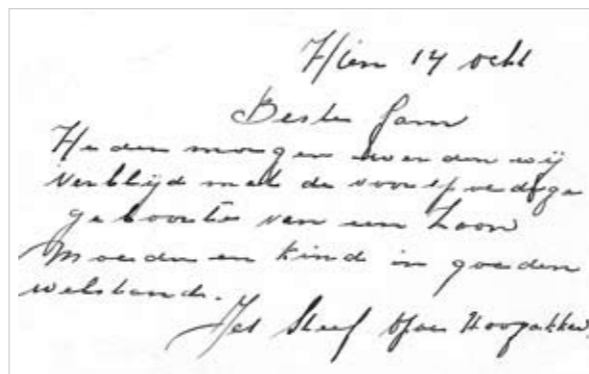 Hien 14 ocht
Beste fam
Heden morgen werden wij
verblijd met de voorspoedige
geboorte van een Zoon
Moeder en kind in goeden
welstand.
Jet Steef